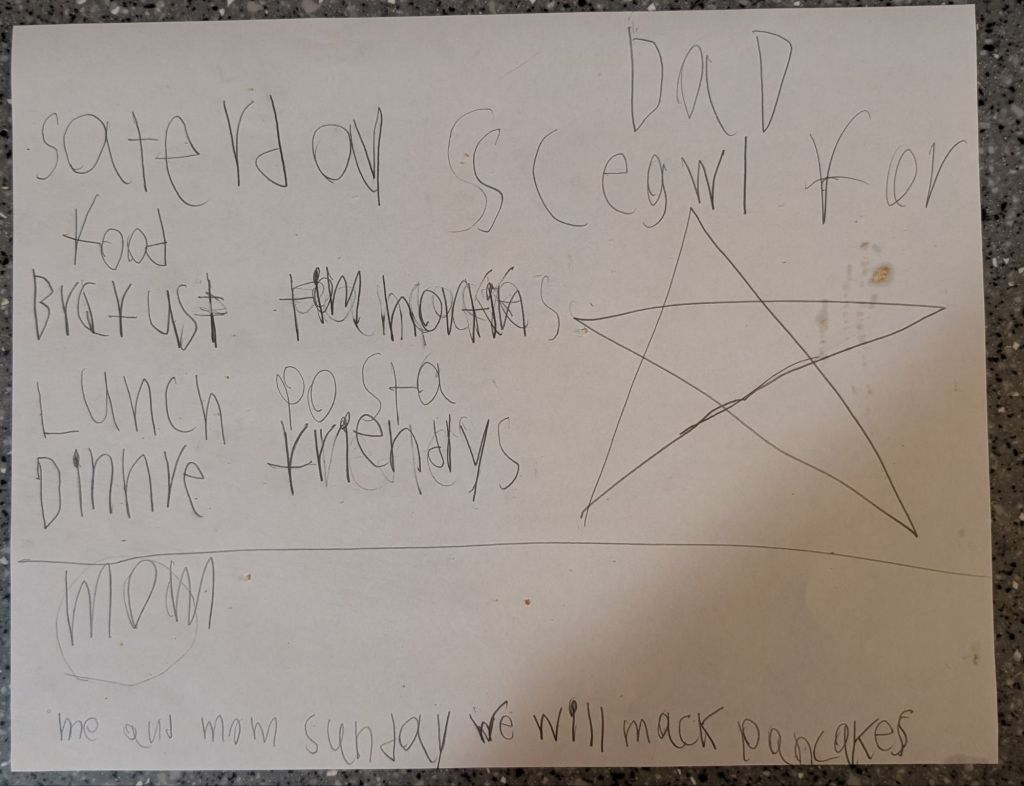 DaD
saterday SSCegwl for
food
Brafust timhortins
Lunch posta
Dinnre friendys
mom
me and mom sunday we will mack pancakes